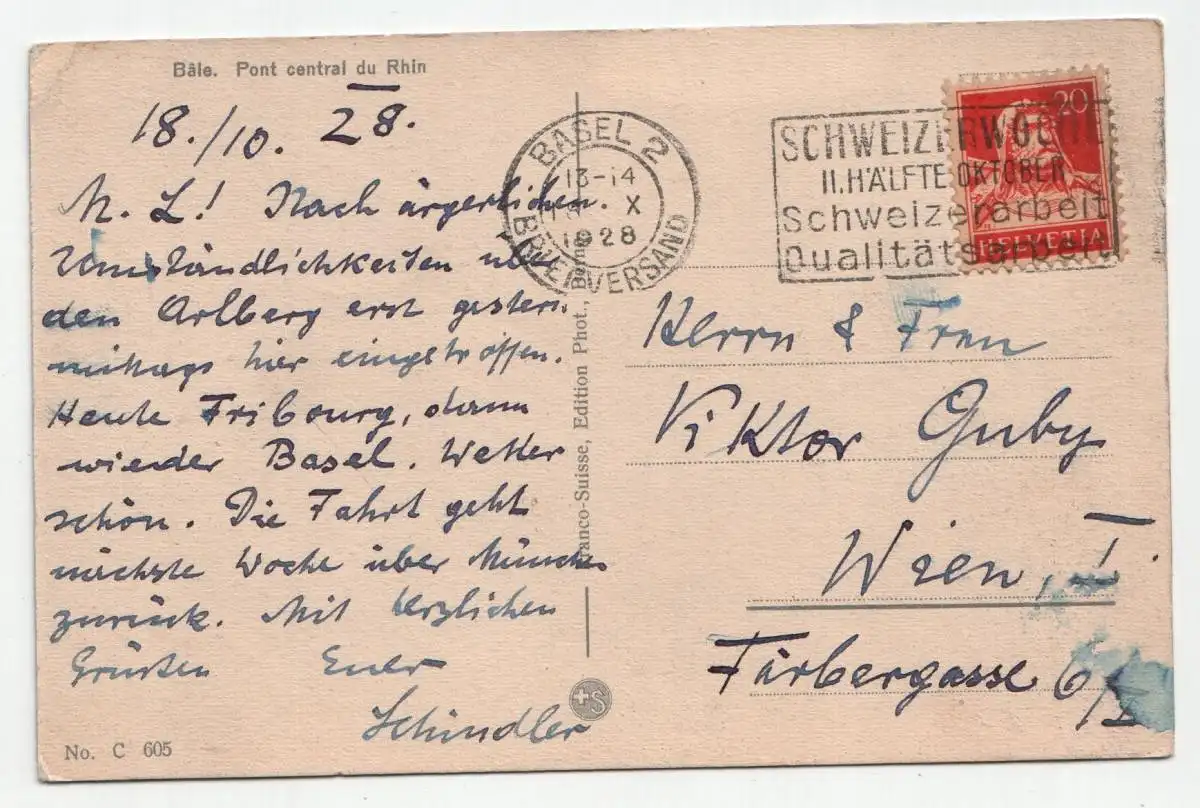 Bâle. Pont central du Rhin
18./10. 28.
M. L! Nach ärgerlichen
Umständlichkeiten über
den Arlberg erst gestern
mittags hier eingetroffen.
Heute Fribourg, dann
wieder Basel. Wetter
schön. Die Fahrt geht
nächste Woche über München
zurück. Mit herzlichen
Grüßen Euer
Schindler
No. C 605
Franco-Suisse, Edition Phot., Berne
+S
BASEL 2
13-14
X
1928
BRIEFVERSAND
SCHWEIZERWOCHE
II. HÄLFTE OKTOBER
Schweizerarbeit
Qualitätsarbeit
20
HELVETIA
Herrn & Frau
Viktor Guby
Wien, I.
Färbergasse 6/I